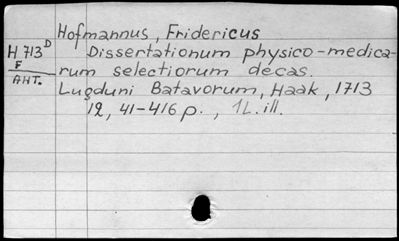 Hofmannus, Fridericus
H 713 D
F
АНТ.
Dissertationum physico-medica-
rum selectiorum decas.
Lugduni Batavorum, Haak, 1713
12, 41-416 p., 1 L. ill.